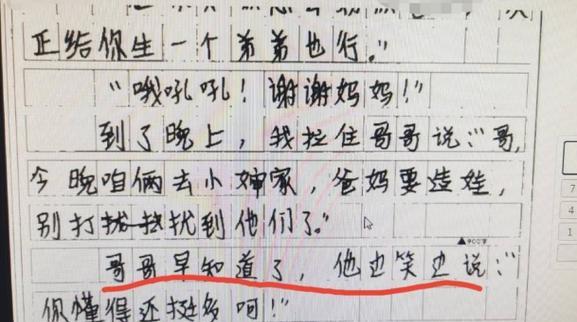 正给你生一个弟弟也行。”
“哦吼吼！谢谢妈妈！”
到了晚上，我拉住哥哥说：“哥，
今晚咱俩去小婶家，爸妈要造娃，
别打扰到他们了。”
▲900字
哥哥早知道了，他边笑边说：“
你懂得还挺多呵！”
7
4
1